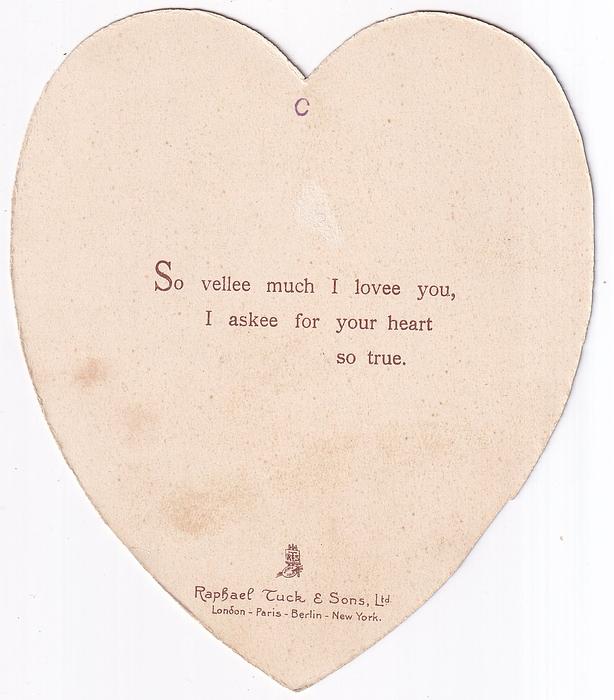 C
So vellee much I lovee you,
I askee for your heart
so true.
Raphael Tuck & Sons, Ltd.
London - Paris - Berlin - New York.